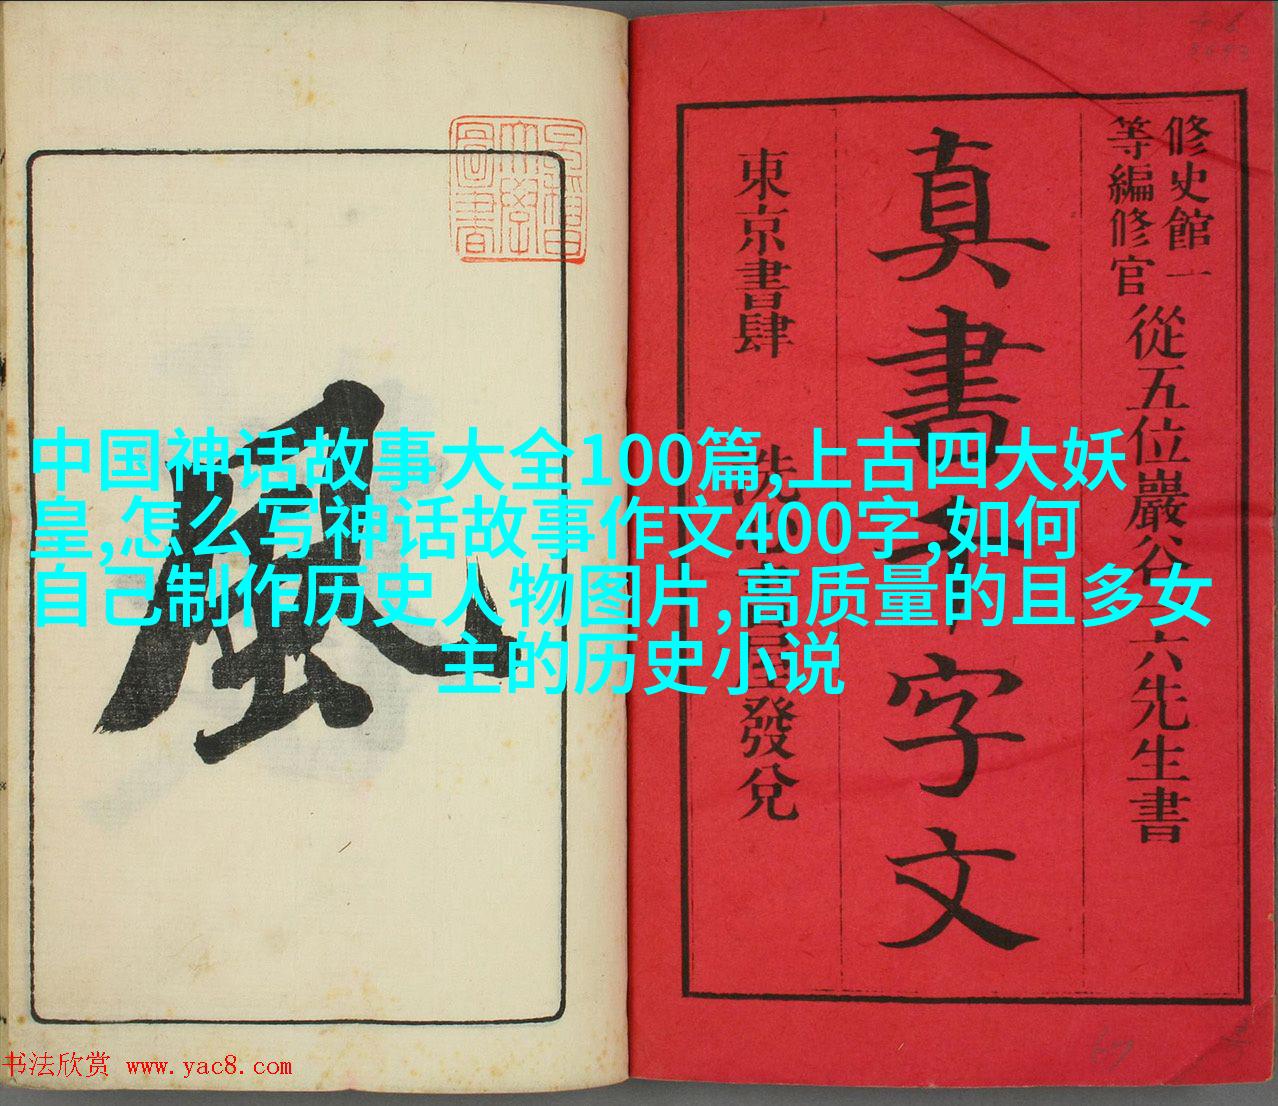 修史館一
等編修官
從五位巖谷一六先生書
真書千字文
東京書肆
屋發兌
風
中国神话故事大全100篇,上古四大妖
皇,怎么写神话故事作文400字,如何
自己制作历史人物图片,高质量的且多女
主的历史小说
书法欣赏 www.yac8.com